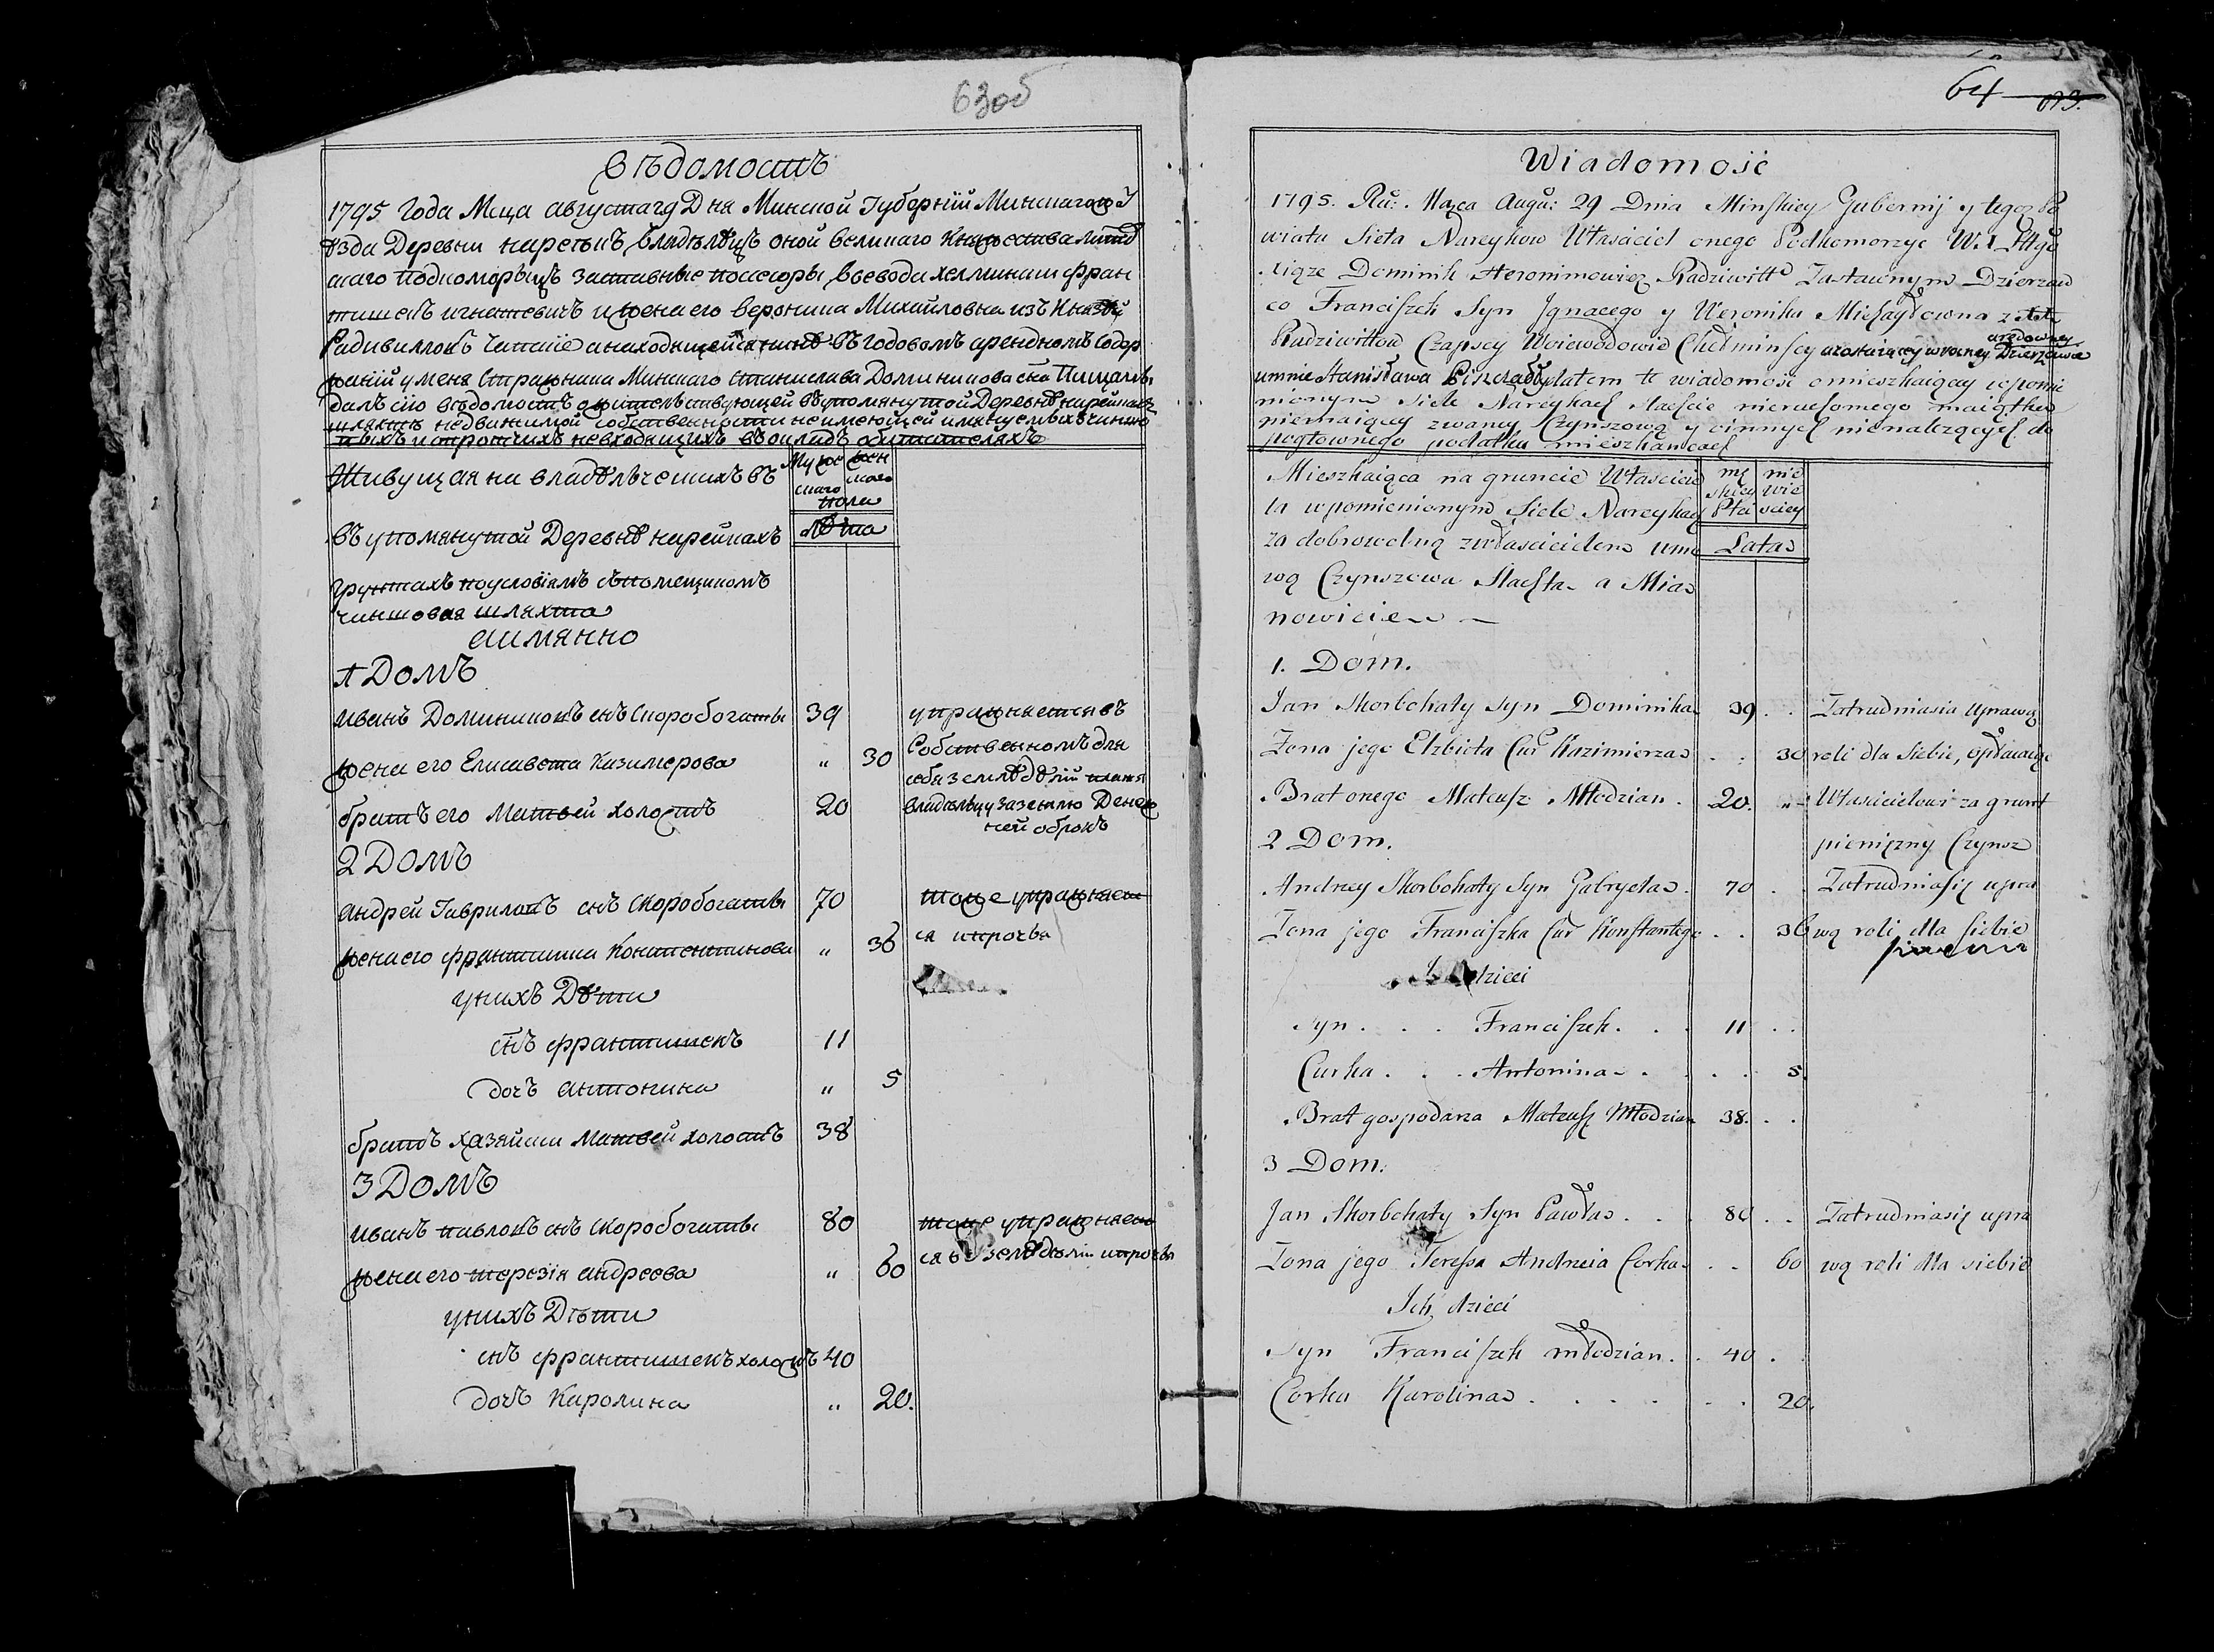 63об
Вѣдомость
1795 Года Мсца августа 29 Дня Минской Губерніи Минскаго у
ѣзда Деревни нареекъ, владѣлецъ оной великаго Княжества Литов
скаго подкоморыцъ заставные посесоры воевода хелмински фран
тишекъ игнатевичъ и жена его вероника Михайловна изъ Князей
Радивиловъ Чапские а находящейся нынѣ въ годовомъ арендномъ Содер
жаніи у меня Стражника Минскаго станислава Доминикова сна Пищалы
далъ сію вѣдомость о жительствующей въ упомянутой Деревнѣ нарейках
шляхтѣ недвижимой собственности не имеющей имянуемых чиншо
выхъ и протчихъ невходящихъ въ окладъ обитателяхъ
Живущая на владѣлческихъ въ
Мужескаго женскаго
пола
лѣта
въ упомянутой Деревнѣ нарейкахъ
грунтахъ по условіямъ съ помещикомъ
чиншовая шляхта
а имянно
1 Домъ
иванъ Доминиковъ снъ Скоробогаты 39 упражняется въ
жена его Елисавета Казимерова " 30 Собственномъ для
себя земледѣліи платя
братъ его Матвей холостъ 20 владѣлцу за землю Денеж
ней оброкъ
2 Домъ
андрей Гавриловъ снъ скоробогаты 70 тоже упражняет
жена его франтишка Константинова " 36 ся и проч
у нихъ Дѣти
снъ франтишекъ 11
дочъ антонина " 5
братъ хазяина Матвей холостъ 38
3 Домъ
иванъ павловъ снъ скоробогаты 80 тоже упражняет
жена его терезія андреева " 60 ся в земледѣліи и проч
у нихъ Дѣти
снъ франтишекъ холостъ 40
дочъ Каролина " 20.
64 693.
Wiadomość
1795. Ru: Mąca Augu: 29 Dnia Minskiey Gubernij y tegoż Po
wiatu Sieła Nareykow Własciciel onego Podkomorzyc W. X. Litgo
Xiąze Dominik Heronimowicz Radziwiłł Zastawnym Dzierzaw
co Franciszek Syn Jgnacego y Weronika Michayłowna z
Radziwiłłow Czapscy Woiewodowie Chełminscy a zostaiącey w roczney Dzierzawie
umnie Stanisława Piszczały dałem tę wiadomość o mieszkaigcey wpomie
nionym Siele Nareykach Szlachcie nieruchomego maiątku
niemaigcey zwaney Czynszową y innych nienalezących do
pogłownego podatku mieszkancach
Mieszkaiąca na gruncie Własciciе
mę skiey Płci nie wie sciey
la wpomienionym Siele Nareykach
za dobrowolną zwłascicielem umo Lata
wą Czynszowa Szlachta a Mia
nowicie
1. Dom.
Jan Skorbohaty Syn Dominika 39 . . Zatrudniasia uprawą
Zona jego Elzbieta Cur Kazimierza . . 30 roli dla Siebie, opłacaiąc
Brat onego Mateusz Młodzian . 20. " Włascicielowi za grunt
2 Dom. pieniężny Czynsz
Andrzey Skorbohaty Syn Gabryela . 70 . . Zatrudniasię upra
Zona jego Franciszka Cur Konstantego . . 36 wą roli dla Siebie
dzieci
Syn . . . Franciszek . . 11 . .
Curka . . . Antonina . . . . 5.
Brat gospodarza Mateusz Młodzian 38. . .
3 Dom.
Jan Skorbohaty Syn Pawła . . . 80 . . Zatrudniasię upra
Zona jego Teressa Andrzeia Corka . . 60 wą roli dla siebie
Jch dzieci
Syn Franciszek młodzian . . 40 .
Corka Karolina . . . . . . 20.